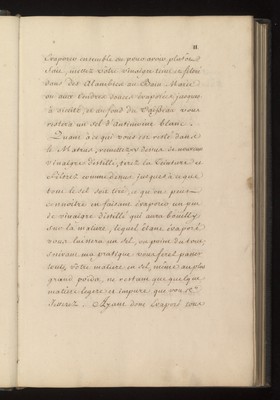 11
Evaporer ensemble ou pour avoir plutôt
fait, mettez votre vinaigre teint et filtré
dans des Alambics au Bain Marie
ou aux Cendres douces, évaporés jusques
à siccité, et au fond du Vaisseau vous
restera un sel d'antimoine blanc.
Quant à ce qui vous est resté dans
le Matras, remettez y dessus de nouveau
vinaigre distillé, tirez la Teinture et
filtrez comme dessus jusqu'à ce que
tout le sel soit tiré, ce qu'on peut
connoître en faisant évaporer un peu
de vinaigre distillé qui aura bouilly
sur la matiere, lequel étant évaporé
vous laissera un sel, ou point du tout,
suivant ma pratique vous ferez passer
toute votre matiere en sel, même au plus
grand poids, ne restant que quelque
matiere legere et impure que vous
Jetterez. Ayant donc évaporé tous